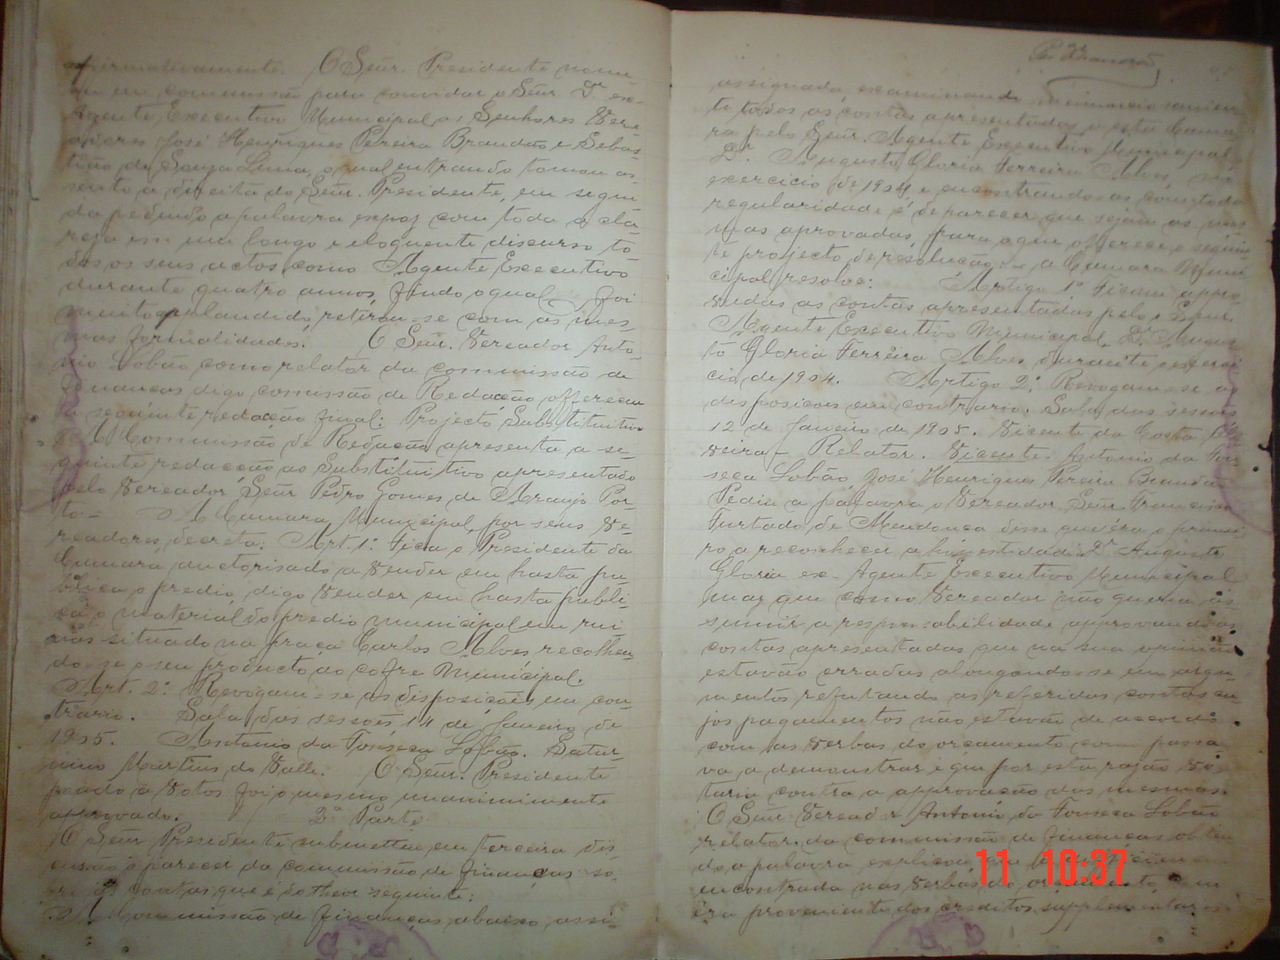 affirmativamente. O Señr. Presidente nome-
ou em commissão para convidar o Señr. Dr. ex-
Agente Executivo Municipal os Senhores Vere-
adores José Henriques Pereira Brandão e Sebas-
tião de Souza Lima, o qual entrando tomou as-
sento a direita do Señr. Presidente, em segui-
da pedindo a palavra expoz com toda a cla-
reza em um longo e eloquente discurso to-
dos os seus actos como Agente Executivo
durante quatro annos, findo o qual foi
muito applaudido, retirou-se com as mes-
mas formalidades. O Señr. Vereador Anto-
nio Lobão como relator da commissão de
Finanças digo commissão de Redacção offereceu
a seguinte redacção final: Projecto Substitutivo
A Commissão de Redacção apresenta a se-
guinte redacção ao Substitutivo apresentado
pelo Vereador Señr Pedro Gomes de Araujo Por-
to = A Camara Municipal por seus Ve-
readores, decreta: Art. 1º Fica o Presidente da
Camara auctorisado a vender em hasta pu-
blica o predio, digo vender em hasta publi-
ca o material do predio municipal em rui-
nas situado na praça Carlos Alves recolhen-
do-se o seu producto ao cofre Municipal.
Art. 2º Revogam-se as disposições em con-
trario. Sala das sessoes, 14 de Janeiro de
1905. Antonio da Fonseca Lobão. Satur-
nino Martins do Valle. O Señr. Presidente
pondo a votos foi o mesmo unanimimente
approvado. 3ª Parte
O Señr Presidente submetteu em terceira dis-
cussão o parecer da commissão de finanças so-
bre as contas que é do theor seguinte:
A Commissão de Finanças abaixo assi-
P. Brandão
assignada, examinando
te todos as contas apresentados a esta Cama-
ra pelo Señr. Agente Executivo Municipal
Dr. Augusto Gloria Ferreira Alves, no
exercicio de 1904, e encontrando-as com toda
regularidade é de parecer que sejam as mes-
mas aprovadas, para o que offerece o seguin-
te projecto de resolução: - a Camara Muni-
cipal resolve: Artigo 1º Ficam appro-
vadas as contas apresentadas pelo Exmr.
Agente Executivo Municipal Dr. Augus-
to Gloria Ferreira Alves durante o exerci-
cio de 1904. Artigo 2º Revogam-se as
disposicoes em contrario. Sala das sessões
12 de Janeiro de 1905. Vicente da Costa
Relator. Vicente. Antonio da Fon-
seca Lobão, José Henriques Pereira Brandão
Pedio a palavra o Vereador Señr. Francisco
Furtado de Mendonça disse que éra o primei-
ro a reconhecer a honestidade Dr. Augusto
Gloria ex-Agente Executivo Municipal
mas que como Vereador não queria as-
sumir a responsabilidade approvando as
contas apresentadas que na sua opinião
estavão erradas alongando-se em argu-
mentos refutando as referidas contas cu-
jos pagamentos não estavão de accordo
com as verbas do orçamento como passa-
va a demonstrar e que por esta razão vo-
taria contra a approvação das mesmas.
O Señr Vereador Antonio da Fonseca Lobão
relator da commissão de finanças obten-
do a palavra explicou
encontrada nas verbas do orçamento
éra proveniente dos creditos supplementares
11 10:37